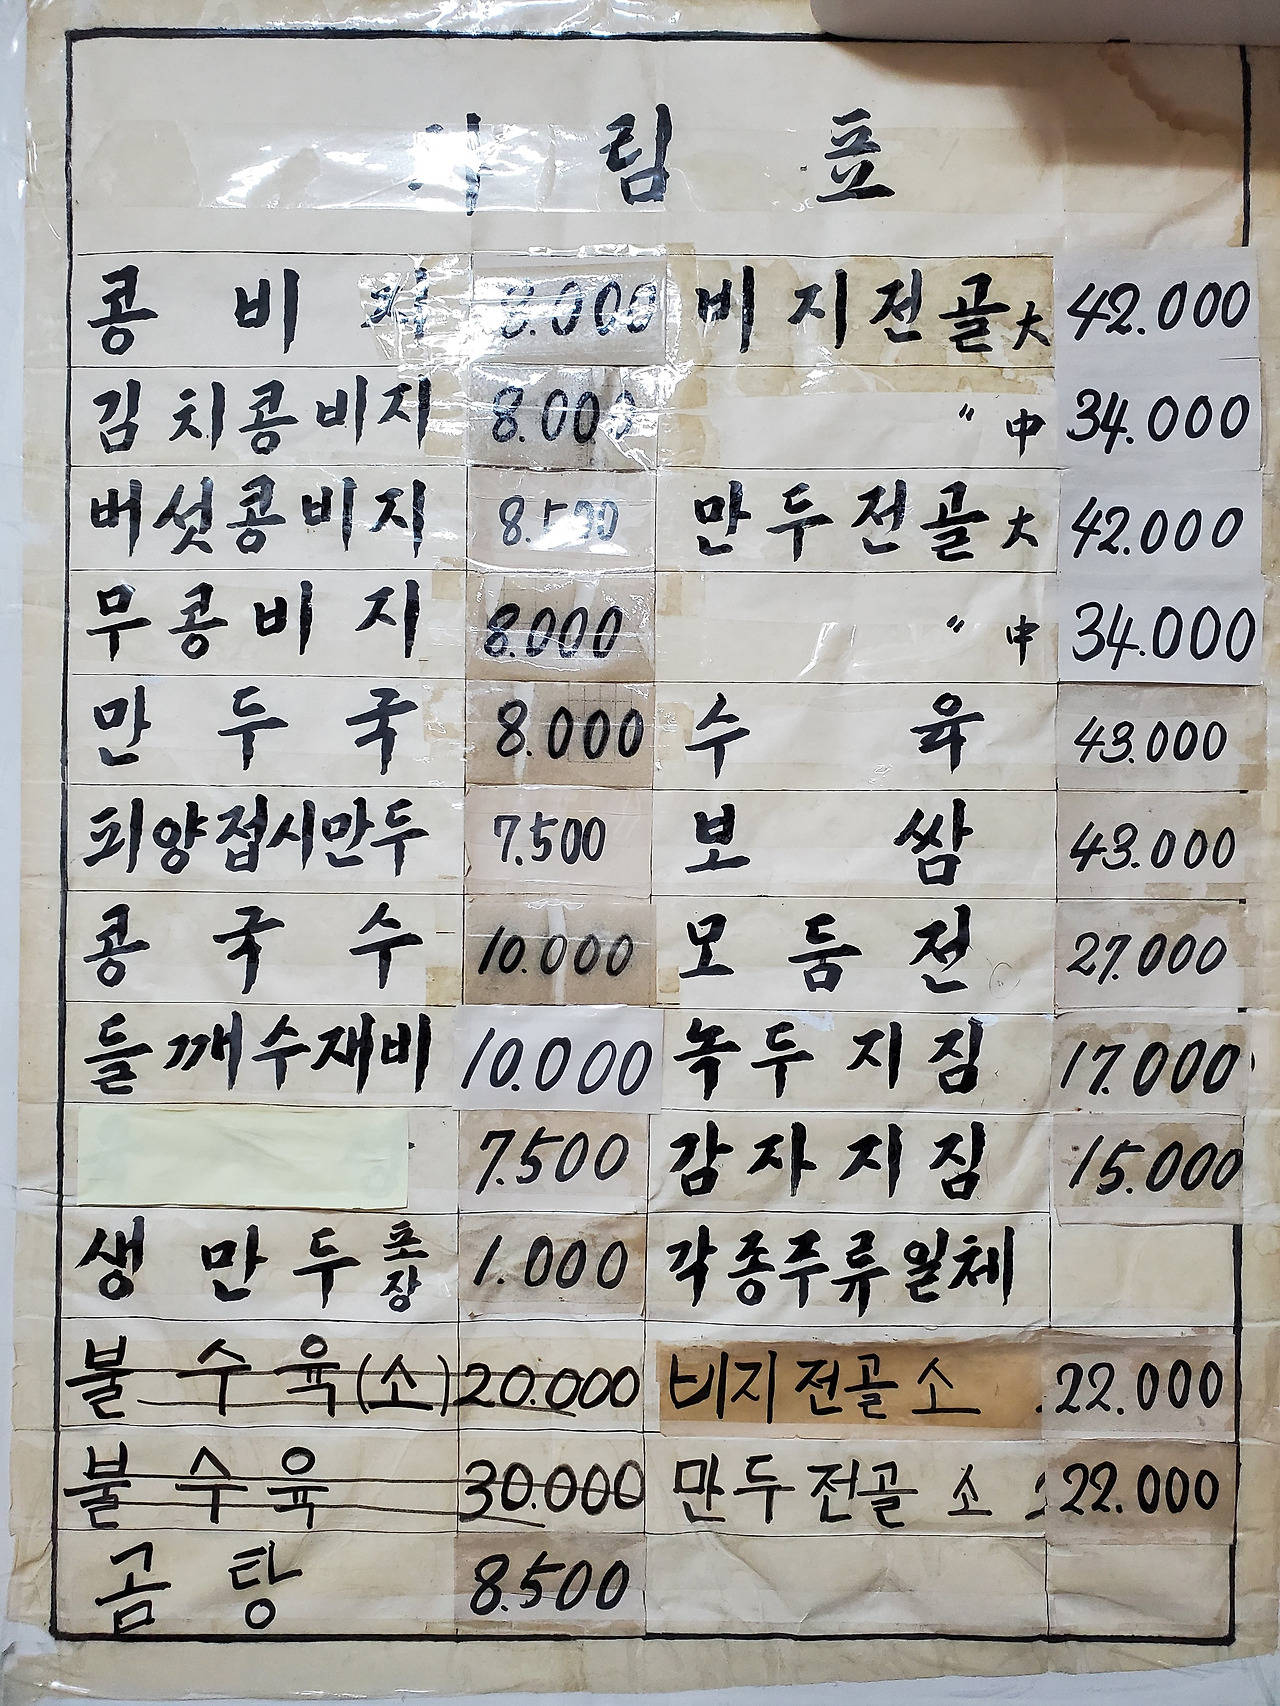 차림표
콩비지 8.000 비지전골大 42.000
김치콩비지 8.000 〃 中 34.000
버섯콩비지 8.500 만두전골大 42.000
무콩비지 8.000 〃 中 34.000
만두국 8.000 수육 43.000
피양접시만두 7.500 보쌈 43.000
콩국수 10.000 모듬전 27.000
들깨수재비 10.000 녹두지짐 17.000
7.500 감자지짐 15.000
생만두포장 1.000 각종주류일체
불수육(소) 20.000 비지전골소 22.000
불수육 30.000 만두전골소 22.000
곰탕 8.500